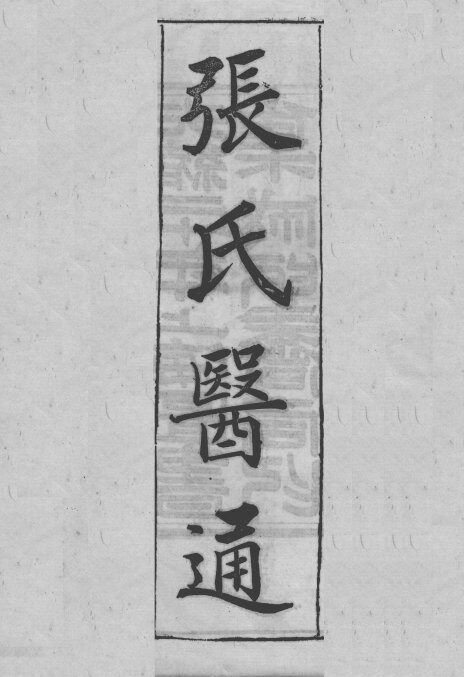 張氏醫通